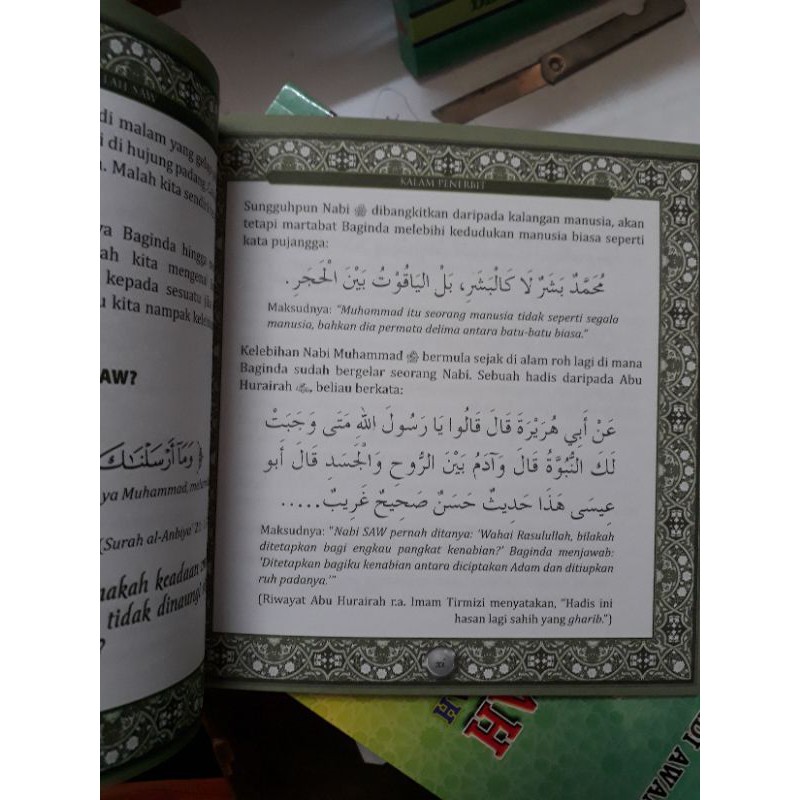 LAH SAW
di malam yang
di hujung padang.
Malah kita
Baginda hingga
kita mengenal
kepada sesuatu
kita nampak
AW?
وَمَآ أَرْسَلْنَٰكَ
ya Muhammad,
(Surah al-Anbiya'
makah keadaan
tidak dinaungi
?
KALAM PENERBIT
Sungguhpun Nabi ﷺ dibangkitkan daripada kalangan manusia, akan
tetapi martabat Baginda melebihi kedudukan manusia biasa seperti
kata pujangga:
مُحَمَّدٌ بَشَرٌ لَا كَالْبَشَرِ، بَلْ الْيَاقُوْتُ بَيْنَ الْحَجَرِ.
Maksudnya: “Muhammad itu seorang manusia tidak seperti segala
manusia, bahkan dia permata delima antara batu-batu biasa.”
Kelebihan Nabi Muhammad ﷺ bermula sejak di alam roh lagi di mana
Baginda sudah bergelar seorang Nabi. Sebuah hadis daripada Abu
Hurairah beliau berkata:
عَنْ أَبِي هُرَيْرَةَ قَالَ قَالُوا يَا رَسُولَ اللهِ مَتَى وَجَبَتْ
لَكَ النُّبُوَّةُ قَالَ وَآدَمُ بَيْنَ الرُّوحِ وَالْجَسَدِ قَالَ أَبو
عِيسَى هَذَا حَدِيثٌ حَسَنٌ صَحِيحٌ غَرِيبٌ.....
Maksudnya: “Nabi SAW pernah ditanya: ‘Wahai Rasulullah, bilakah
ditetapkan bagi engkau pangkat kenabian?’ Baginda menjawab:
‘Ditetapkan bagiku kenabian antara diciptakan Adam dan ditiupkan
ruh padanya.’”
(Riwayat Abu Hurairah r.a. Imam Tirmizi menyatakan, “Hadis ini
hasan lagi sahih yang gharib.”)
AH
AH
DI AWA